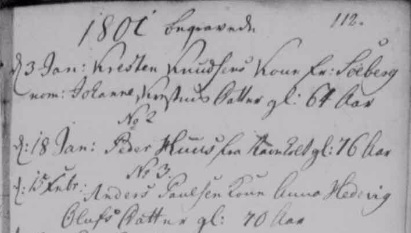 1801 begravede 112.
d 3 Jan: Kresten Knudsens Kone fr: Soeberg
nom: Johanne Datter gl: 64 Aar
No 2
d: 18 Jan: Peder Huus fra gl: 76 Aar
No 3.
d: 15 Febr: Anders Paulsen Kone Anna Hedevig
Olufs Datter gl: 70 Aar